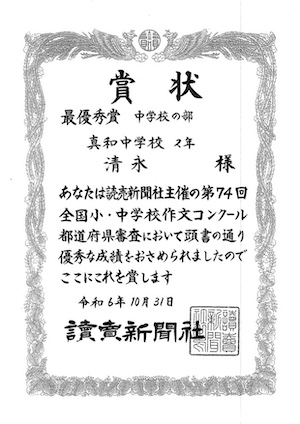 賞状
最優秀賞 中学校の部
真和中学校 2年
清永 様
あなたは読売新聞社主催の第74回
全国小・中学校作文コンクール
都道府県審査において頭書の通り
優秀な成績をおさめられましたので
ここにこれを賞します
令和6年10月31日
讀賣新聞社